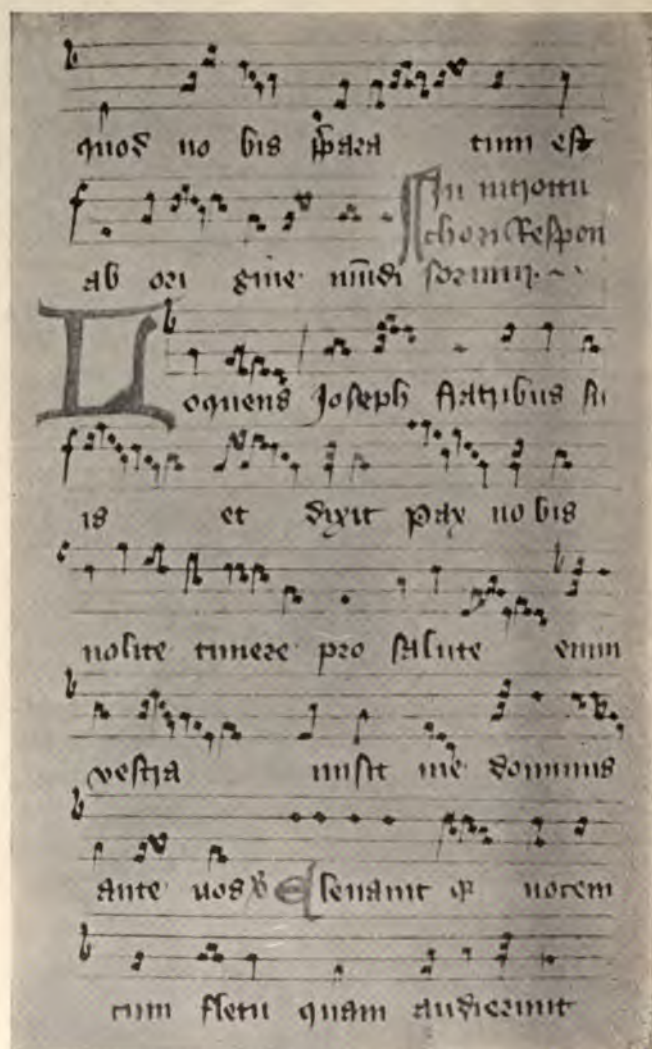 quod no bis para tum est
In introitu
chori Respon
ab ori gine mundi sorium
Loquens Joseph fratribus su
is et dixit pax no bis
nolite timere pro salute enim
vestra misit me dominus
ante uos Eleuauit q uocem
cum fletu quam audierunt